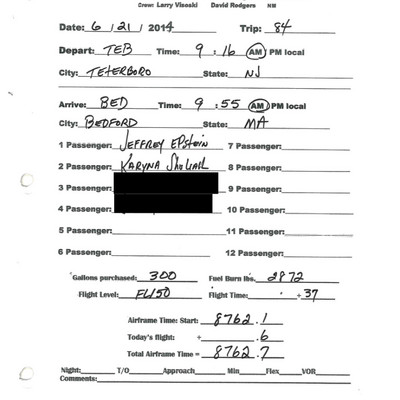 Crew: Larry Visoski David Rodgers NM
Date: 6 / 21 / 2014 Trip: 84
Depart: TEB Time: 9 : 16 AM PM local
City: TETERBORO State: NJ
Arrive: BED Time: 9 : 55 AM PM local
City: BEDFORD State: MA
1 Passenger: JEFFREY EPSTEIN 7 Passenger:
2 Passenger: KARYNA SHULIAK 8 Passenger:
3 Passenger: 9 Passenger:
4 Passenger: 10 Passenger:
5 Passenger: 11 Passenger:
6 Passenger: 12 Passenger:
Gallons purchased: 300 Fuel Burn lbs. 2872
Flight Level: FL150 Flight Time: : +37
Airframe Time: Start: 8762.1
Today's flight: + .6
Total Airframe Time = 8762.7
Night: T/O Approach Min Flex VOR
Comments: